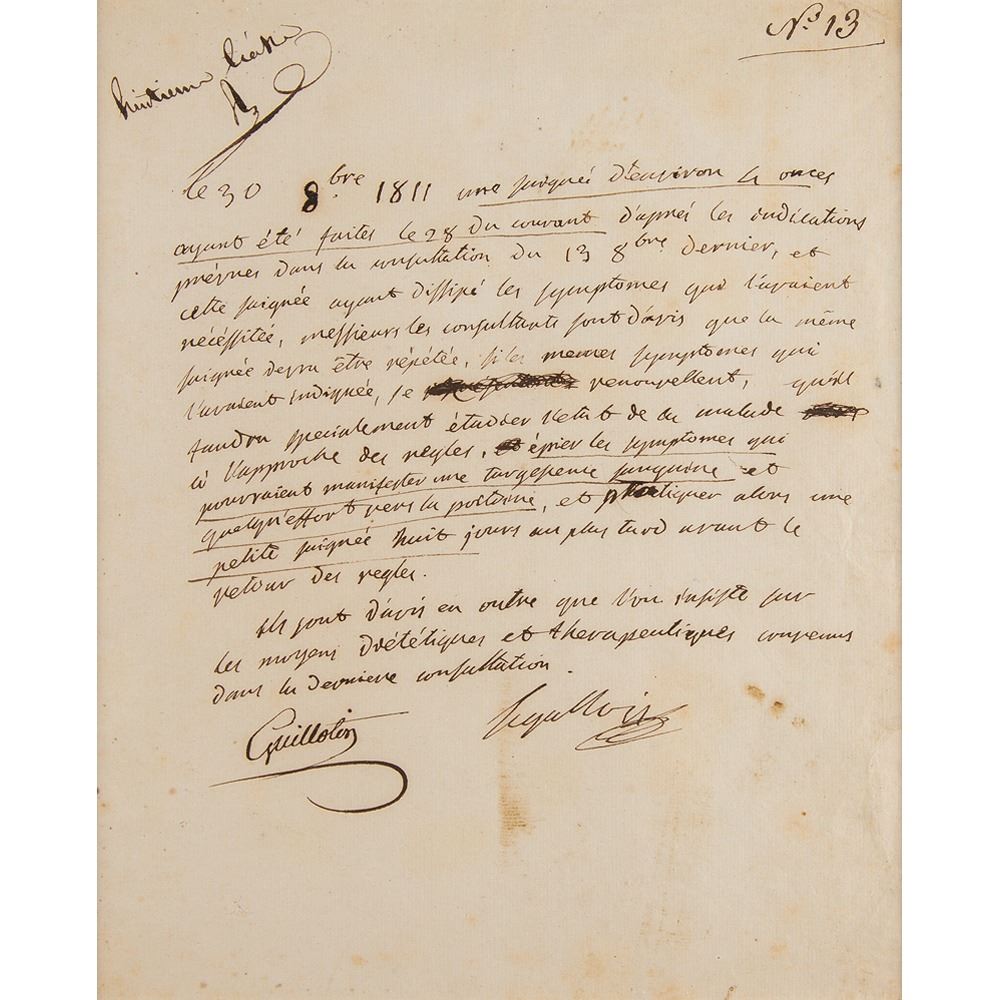 N.º 13
huitieme
le 30 8.bre 1811 une saignée d'environ 4 onces
ayant été faites le 28 du courant d'après les indications
prévues dans la consultation du 13 8bre dernier, et
cette saignée ayant dissipé les symptomes qui l'avaient
nécéssitée, messieurs les consultants sont d'avis que la même
saignée devra être répétée, si les memes symptomes qui
l'avaient indiquée, se renouvellent, qu'il
faudra specialement étudier l'etat de la malade
à l'approche des regles, épier les symptomes qui
pourraient manifester une turgescence sanguine et
quelqu'effort vers la poitrine, et pratiquer alors une
petite saignée huit jours au plus tard avant le
retour des regles.
Ils sont d'avis en outre que l'on insiste sur
les moyens diététiques et therapeutiques convenus
dans la derniere consultation.
Guillotin